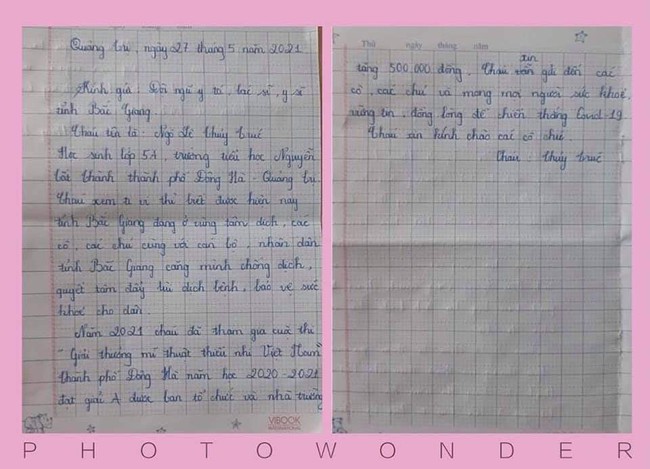 Quảng Trị, ngày 27 tháng 5 năm 2021
Kính gửi: Đội ngũ y tế, bác sĩ, y sĩ
tỉnh Bắc Giang.
Cháu tên là: Ngô Lê Thủy Trúc
Học sinh lớp 5A, trường tiểu học Nguyễn
Tất Thành thành phố Đông Hà - Quảng Trị.
Cháu xem ti vi thì biết được hiện nay
tỉnh Bắc Giang đang ở vùng tâm dịch, các
cô, các chú cùng với cán bộ, nhân dân
tỉnh Bắc Giang căng mình chống dịch,
quyết tâm đẩy lùi dịch bệnh, bảo vệ sức
khoẻ cho dân.
Năm 2021 cháu đã tham gia cuộc thi
"Giải thưởng mĩ thuật thiếu nhi Việt Nam"
thành phố Đông Hà năm học 2020-2021
đạt giải A được ban tổ chức và nhà trường
VIBOOK
Thứ ngày tháng năm
tặng 500.000 đồng. Cháu xin gửi đến các
cô, các chú và mong mọi người sức khoẻ,
vững tin, đồng lòng để chiến thắng Covid-19
Cháu xin kính chào các cô chú
Cháu: Thủy Trúc
PHOTOWONDER